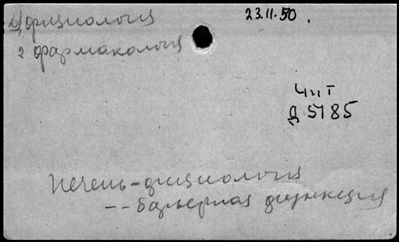 1) физиология
23.11.50.
2 фармакология
Чит
Д 5185
Печень - физиология
-- барьерная функция